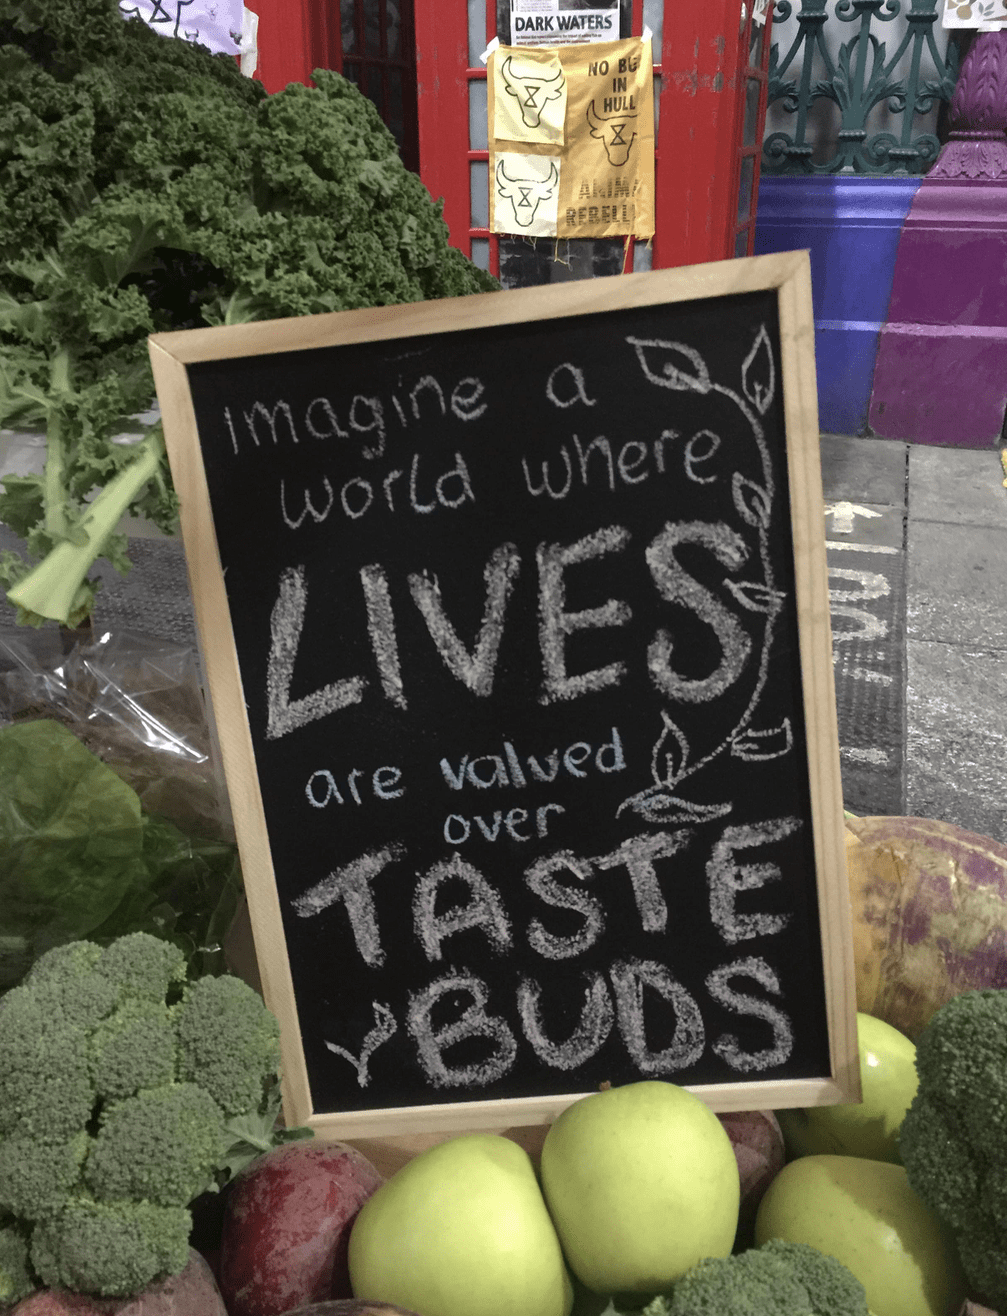 DARK WATERS
NO
IN
HULL
Imagine a
world where
LIVES
are valued
over
TASTE
BUDS